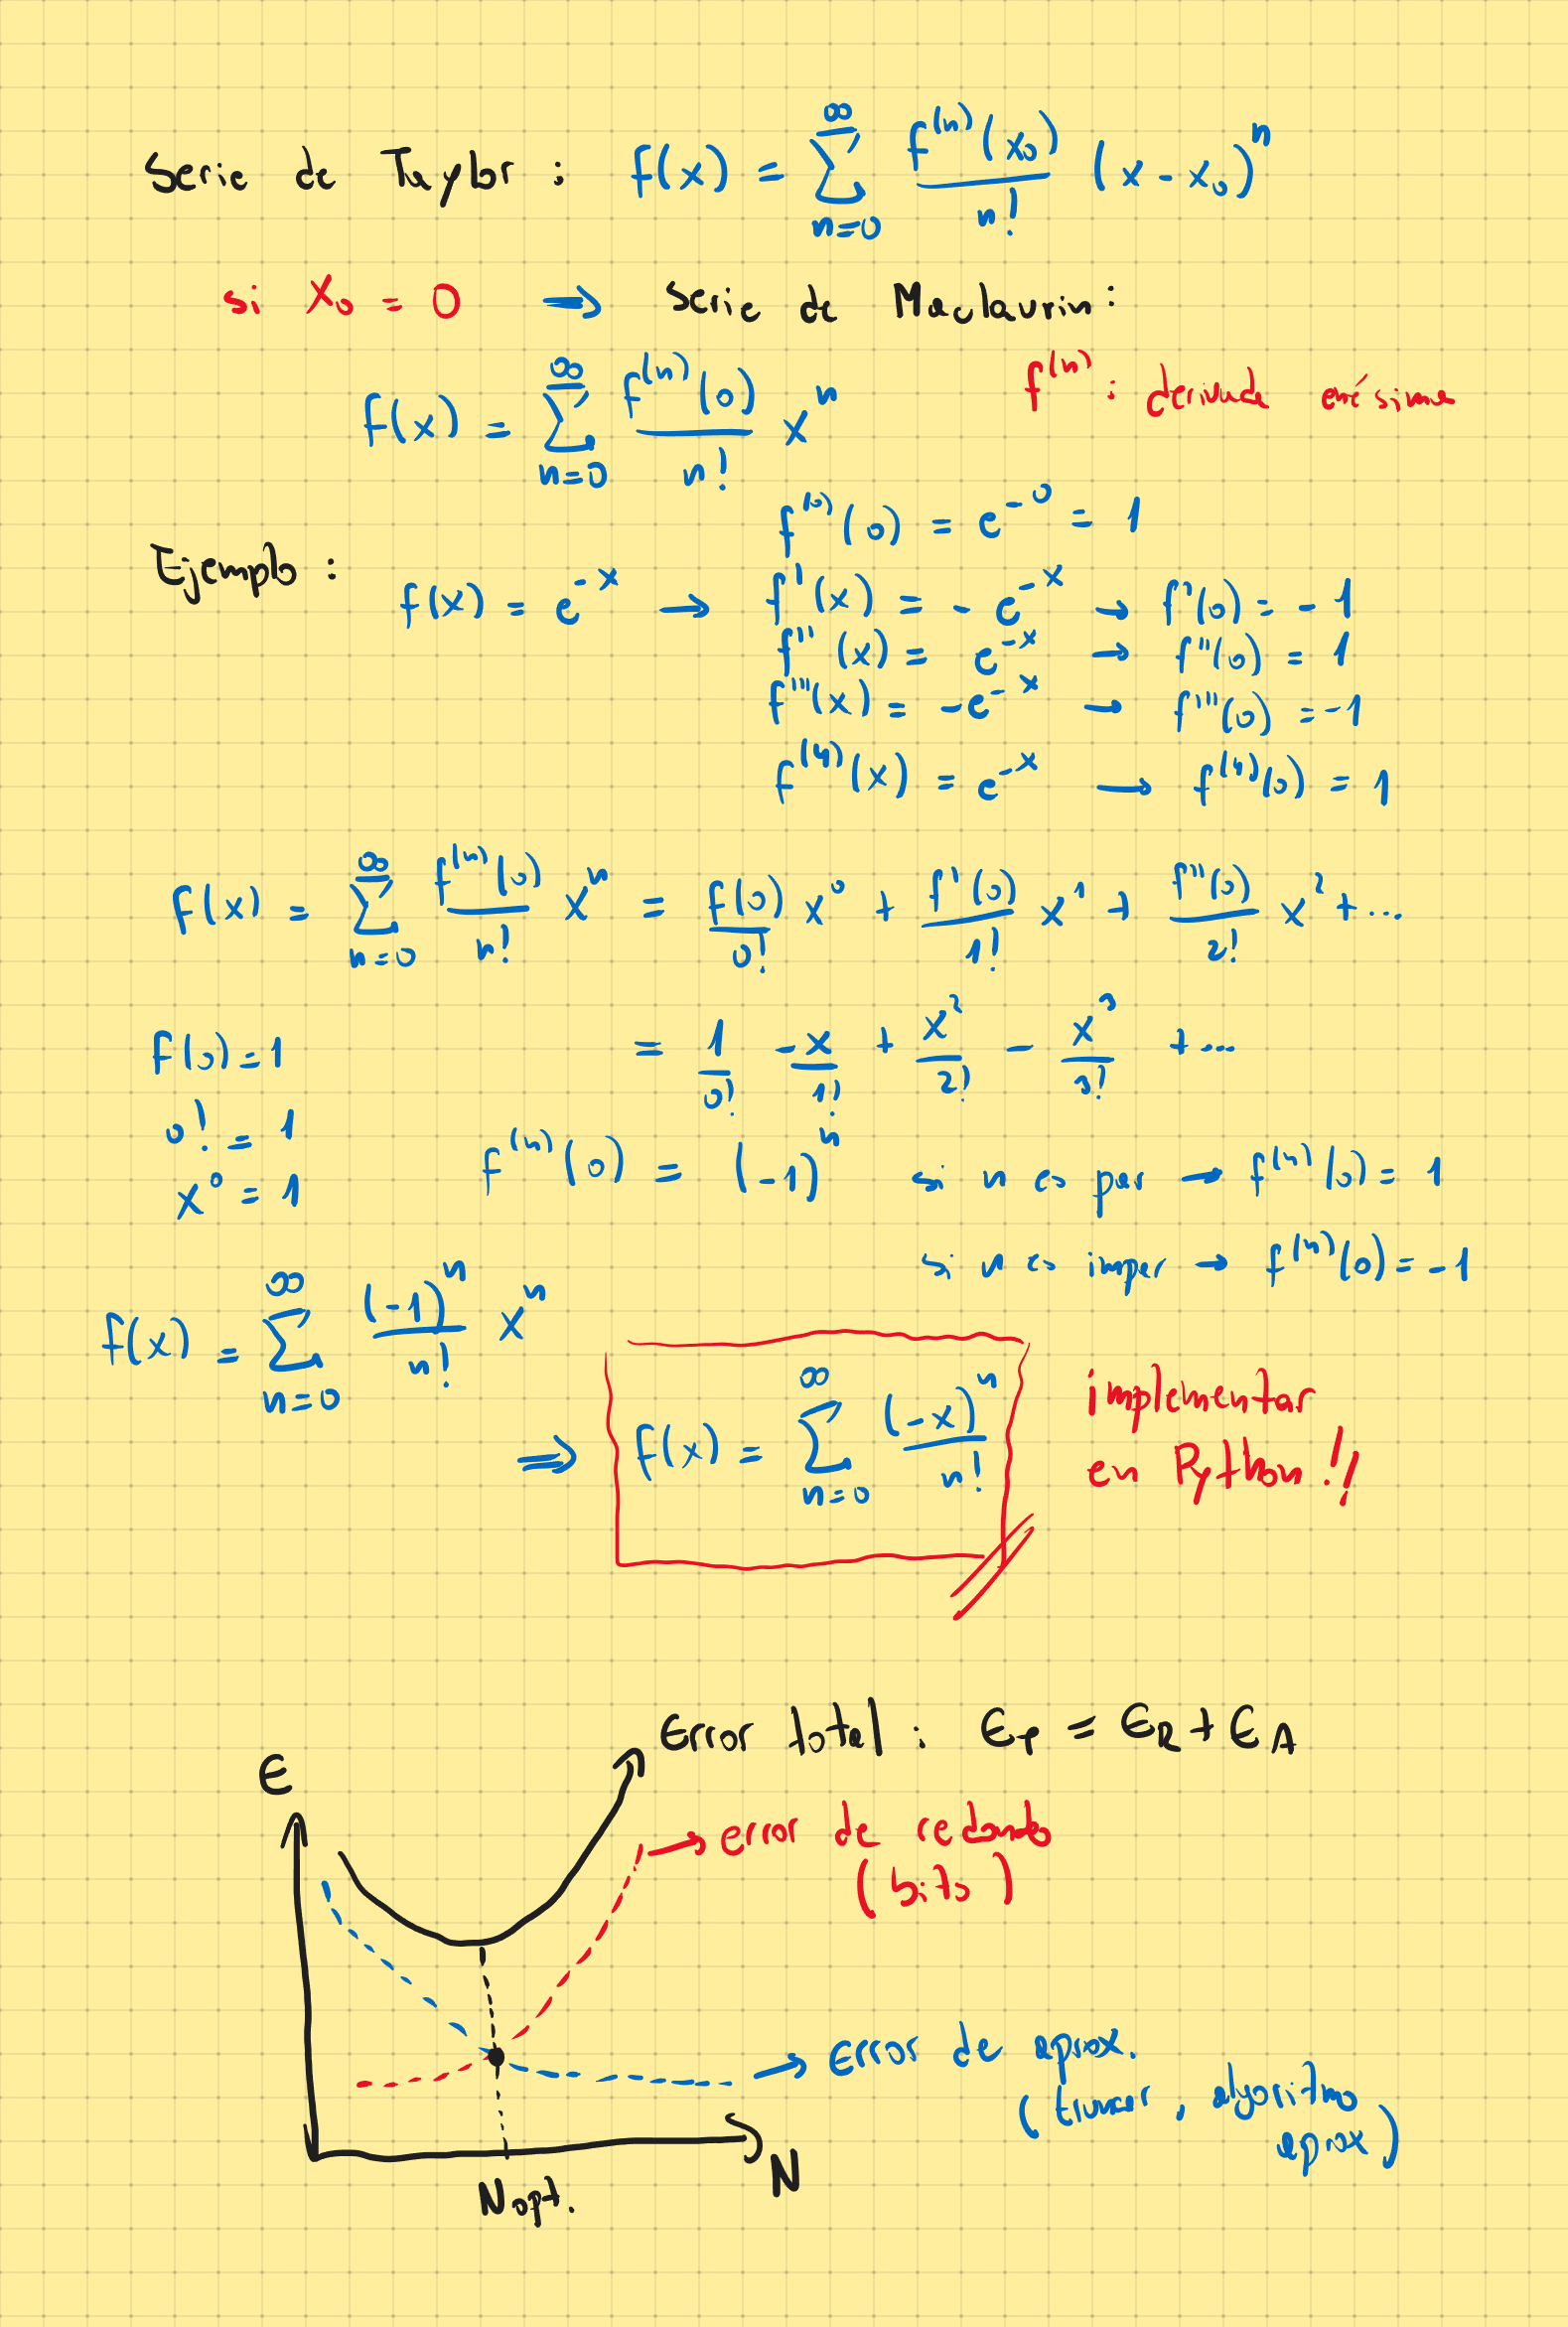 Serie de Taylor : f(x) = ∑_{n=0}^{∞} f^{(n)}(x₀)/n! (x - x₀)^n
si x₀ = 0 ⇒ Serie de Maclaurin:
f(x) = ∑_{n=0}^{∞} f^{(n)}(0)/n! x^n
f^{(n)} : derivada enésima
f^{(0)}(0) = e^{-0} = 1
Ejemplo : f(x) = e^{-x} → f'(x) = - e^{-x} → f'(0) = - 1
f''(x) = e^{-x} → f''(0) = 1
f'''(x) = -e^{-x} → f'''(0) = -1
f^{(4)}(x) = e^{-x} → f^{(4)}(0) = 1
f(x) = ∑_{n=0}^{∞} f^{(n)}(0)/n! x^n = f(0)/0! x^0 + f'(0)/1! x^1 + f''(0)/2! x^2 + ...
f(0) = 1
= 1/0! - x/1! + x^2/2! - x^3/3! + ...
0! = 1
x^0 = 1
f^{(n)}(0) = (-1)^n si n es par → f^{(n)}(0) = 1
si n es impar → f^{(n)}(0) = -1
f(x) = ∑_{n=0}^{∞} (-1)^n/n! x^n
⇒ f(x) = ∑_{n=0}^{∞} (-x)^n/n!
implementar
en Python!!
Error total : ϵ_T = ϵ_R + ϵ_A
ϵ
→ error de redondo
(bits)
→ Error de aprox.
(truncar, algoritmo
aprox)
N
Nopt.